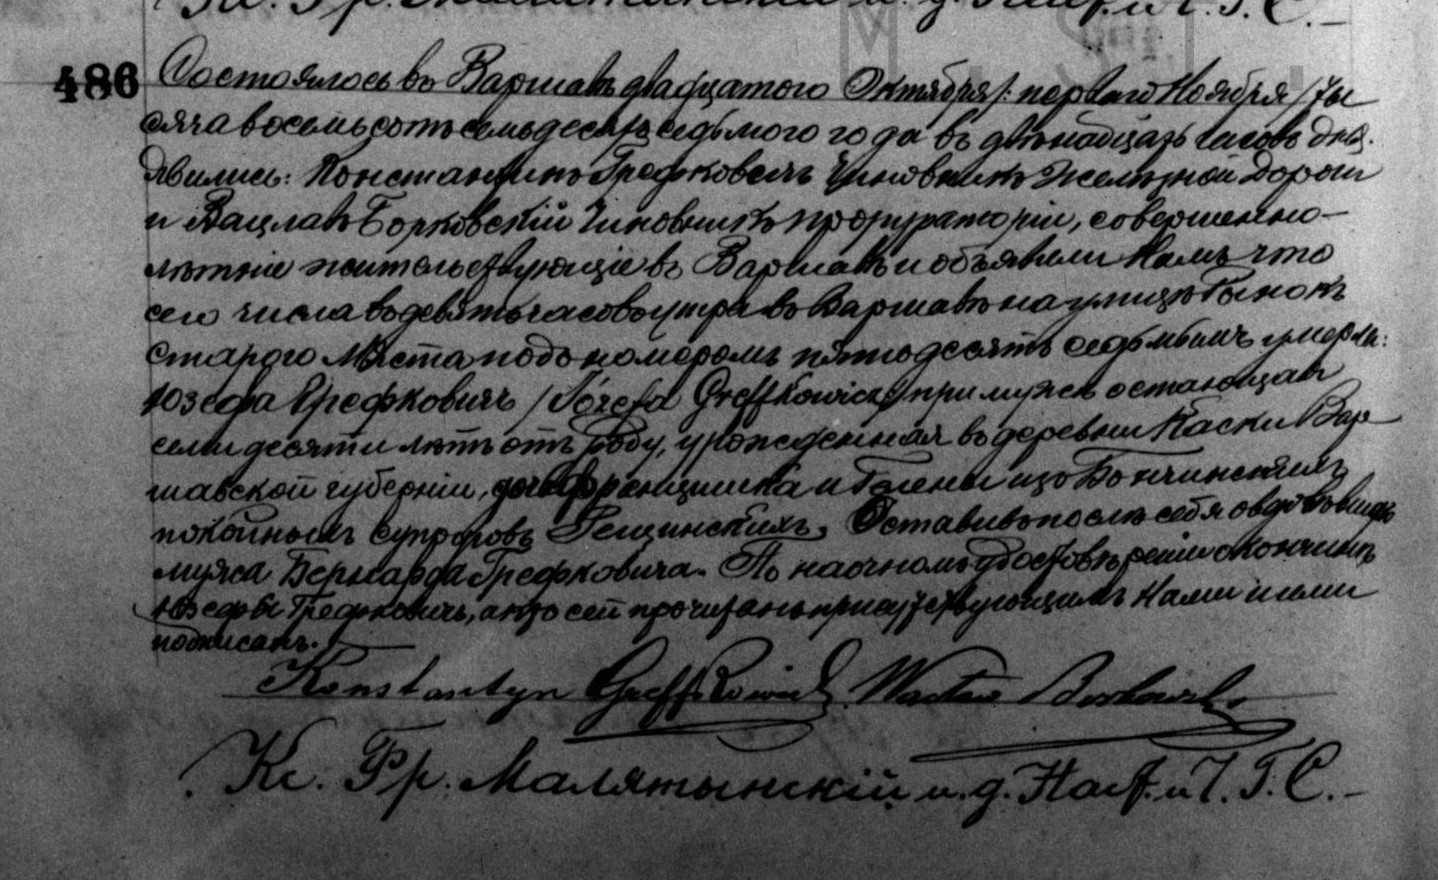 486 Состоялось въ Варшавѣ двадцатого Октября /: первого Ноября / ты
сяча восемьсотъ семьдесятъ седьмого года въ двѣнадцать часовъ дня.
Явились: Константинъ Грефковичъ Чиновникъ Желѣзной Дороги
и Вацлавъ Борковскій Чиновникъ прокураторіи, совершенно-
лѣтніе жительствующіе въ Варшавѣ и объявили Намъ что
сего числа въ девять часовъ утра въ Варшавѣ на улицѣ Рынокъ
Старого Мѣста подъ номеромъ пятьдесятъ седьмымъ умерла:
Юзефа Грефковичъ /Józefa Greffkowicz/ при мужѣ остающая
семидесяти лѣтъ отъ роду, урожденная въ деревни Каски Вар
шавской губерніи, дочь Францишка и изъ
покойныхъ супруговъ Оставивъ послѣ себя овдовѣвшаго
мужа Бернарда Грефковича. По наочномъ удостовѣреніи о кончинѣ
Юзефы Грефковичъ, актъ сей прочитанъ присутствующимъ Нами и ими
подписанъ.
Konstantyn Greffkowicz Wacław Borkowski
Кс. Гр. Малятынскій и. д. Наст. и Ч. Г. С.-